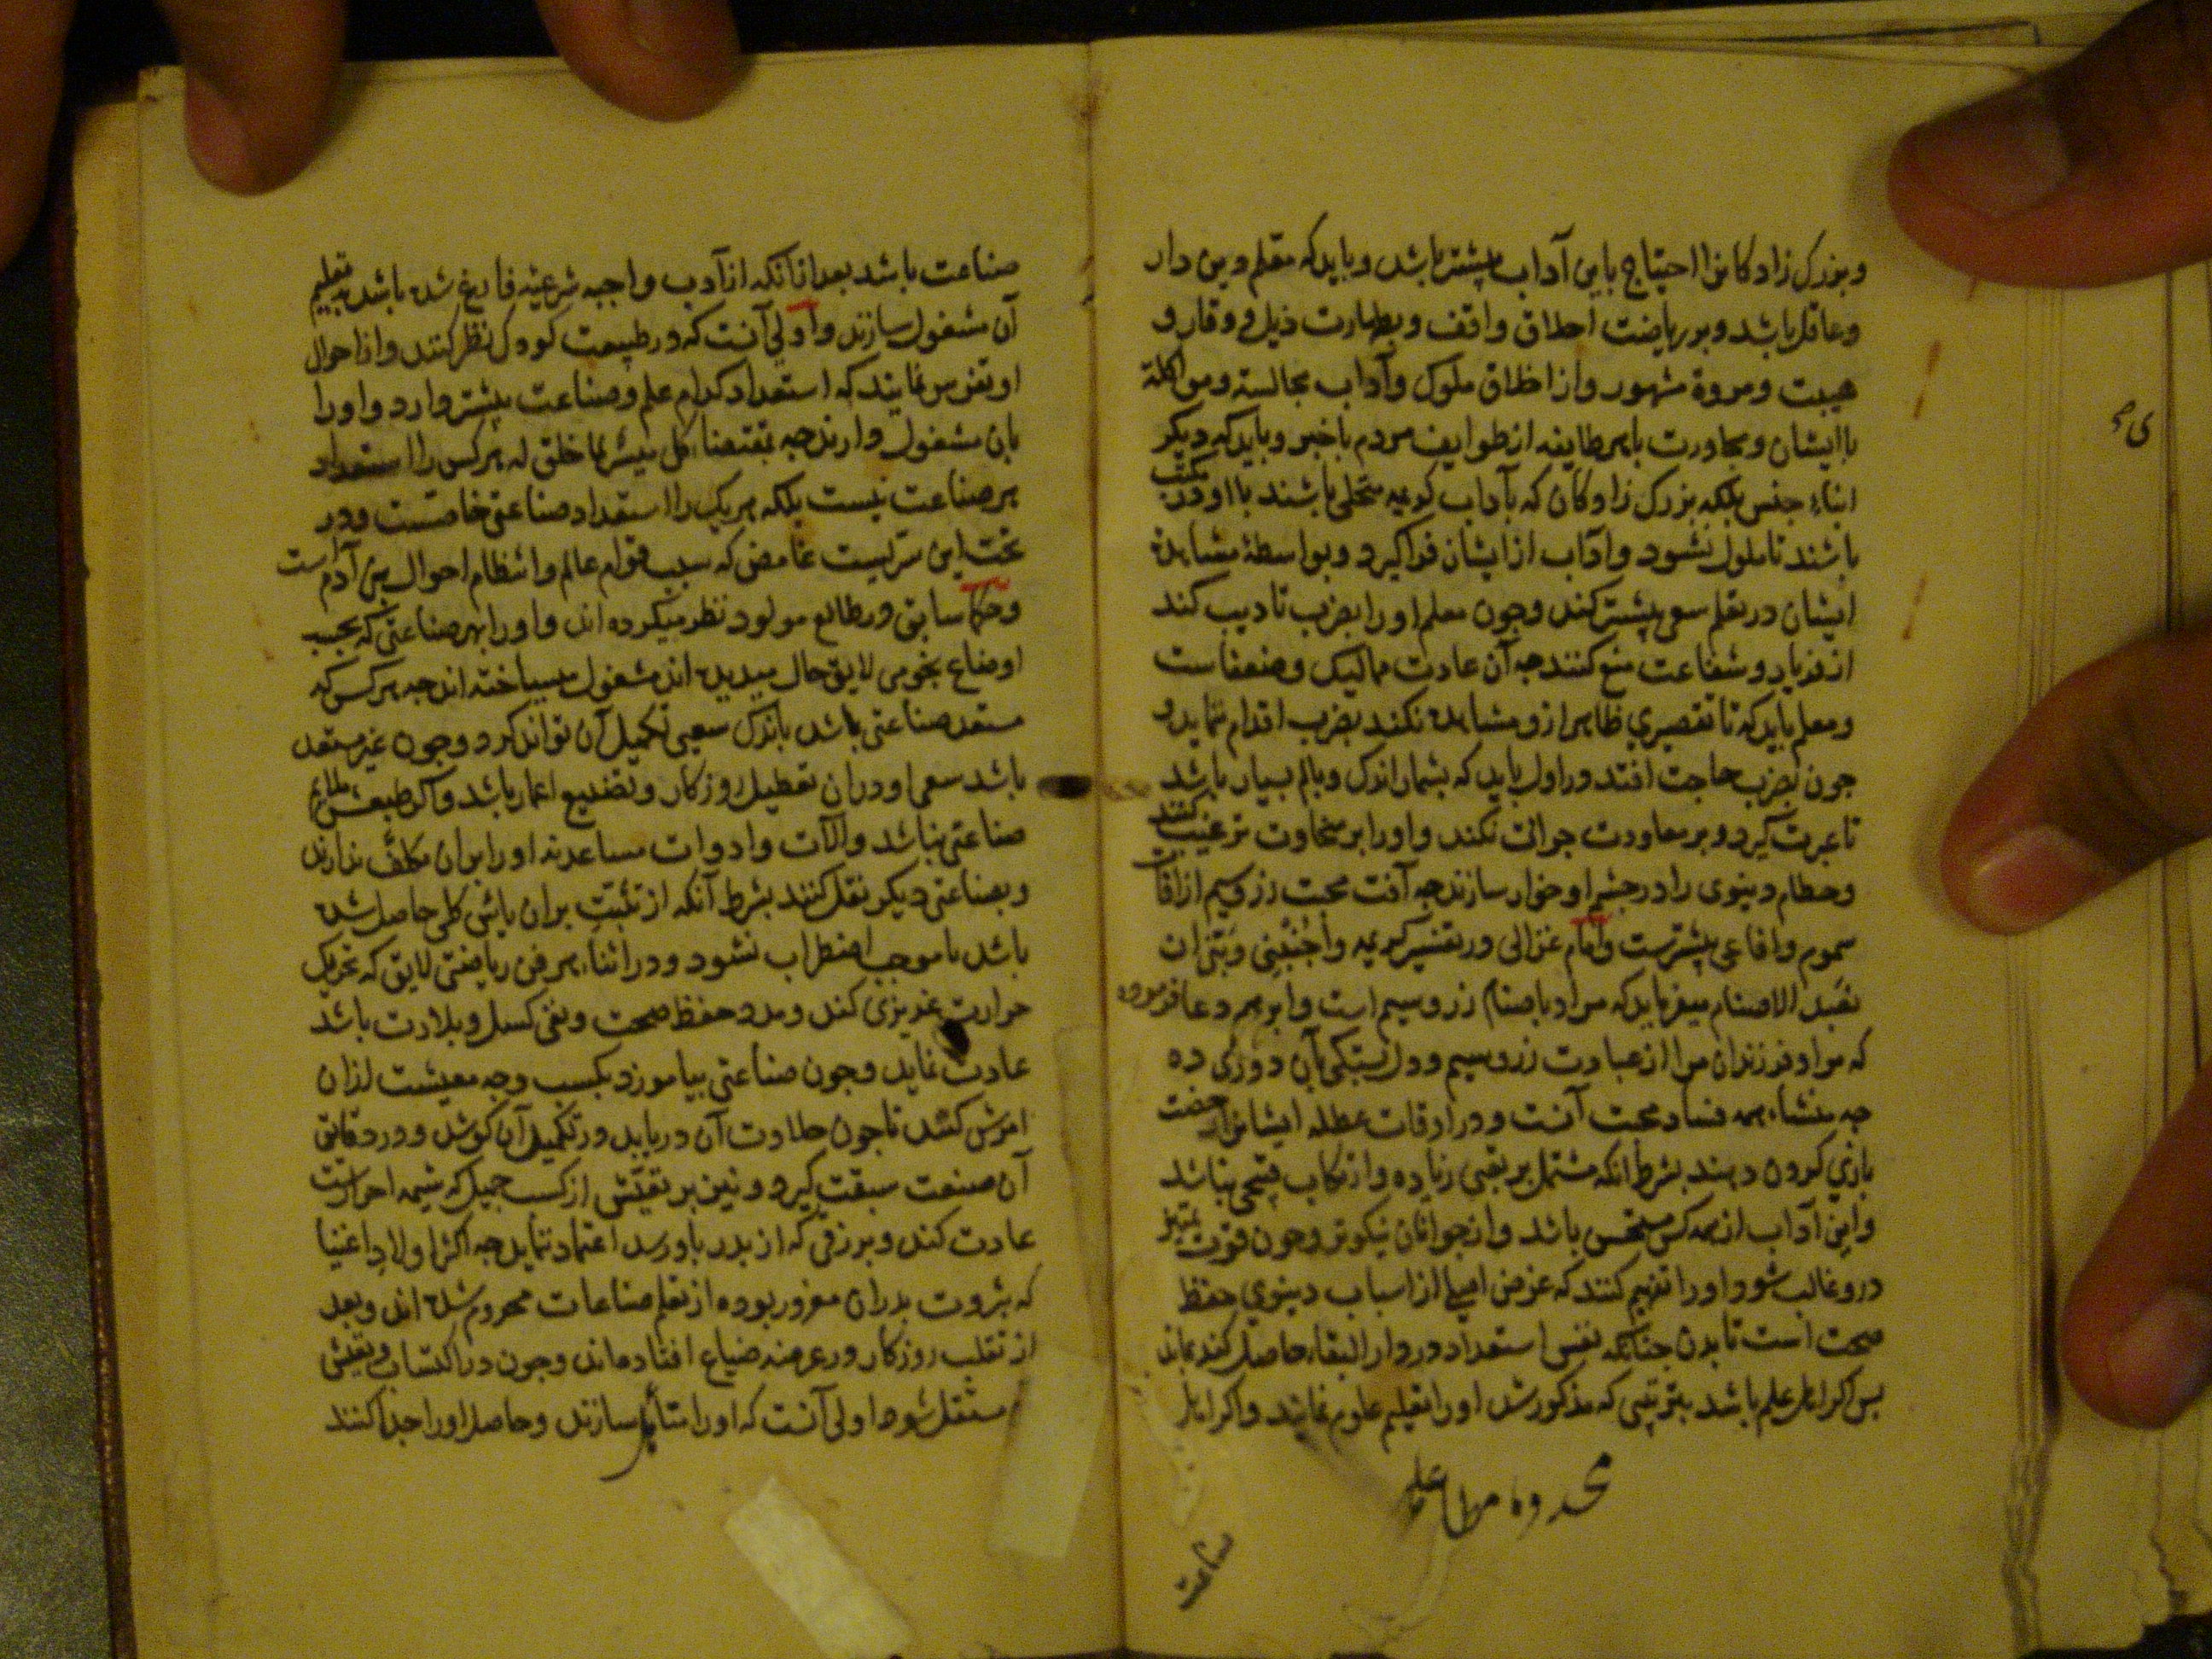 و بزرگ زادگانرا احتیاج باین آداب بیشتر باشد و باید که معلم دین دار
و عاقل باشد و بر ریاضت اخلاق واقف و بطهارت ذیل و وقار و
هیبت و مروة مشهور و از اخلاق ملوک و آداب مجالسة و مواکلة
با ایشان و محاورت با هر طایفه از طوایف مردم با خبر و باید که دیگر
ابناء جنس بلکه بزرگ زادگان که بآداب کریمه متحلی باشند با او در مکتب
باشند تا ملول نشود و اداب از ایشان فرا گیرد و بواسطۀ مشاهدۀ
ایشان در تعلم سعی بیشتر کند و چون معلم او را بضرب تادیب کند
از فریاد و شفاعت منع کنند چه آن عادت ممالیک و ضعفاست
و معلم باید که تا تقصیری ظاهر ازو مشاهده نکند بضرب اقدام ننماید و
چون بضرب حاجت افتد در اول باید که بشمار اندک و بالم بسیار باشد
تا عبرت گیرد و بر معاودت جرات نکند و او را بر سخاوت ترغیب کنند
و حطام دینوی را در چشم او خوار سازند چه آفت محبت زر و سیم از افات
سموم و افاعی بیشترست و امام غزالی در تفسیر کریمه و اجنبنی و بنی ان
نعبد الاصنام میفرماید که مراد باصنام زر و سیم است و ابرهیم دعا فرموده
که مرا و فرزندان مرا از عبادت زر و سیم و دل بستگی بآن دوری ده
چه منشاء همه فساد محبت آنست و در اوقات عطله ایشانرا رخصت
بازی کردن دهند بشرط انکه مشتمل بر تعبی زیاده و ارتکاب قبحی نباشد
و این آداب از همه کس مستحسن باشد و از جوانان نیکوتر و چون قوت تمییز
درو غالب شود او را تفهیم کنند که غرض اصلی از اسباب دینوی حفظ
صحت است تا بدن چنانکه نفس استعداد در دار البقاء حاصل کند بماند
پس اگر اهل علم باشد بترتیبی که مذکور شد او را تعلیم علوم نمایند و اگر اهل
صناعت
صناعت باشد بعد از آنکه از آدب واجبه شرعیه فارغ شده باشد بتعلیم
آن مشغول سازند و اولی آنست که در طبیعت کودک نظر کنند و از احوال
او تفرس نمایند که استعداد کدام علم و صناعت بیشتر دارد و او را
بان مشغول دارند چه بمقتضاء کل میسر لما خلق له هر کس را استعداد
هر صناعت نیست بلکه هر یک را استعداد صناعتی خاصست و در
تحت این سریست غامض که سبب قوام عالم و انتظام احوال بنی آدم است
و حکما سابق در طالع مولود نظر میکرده اند و او را بهر صناعتی که بحسب
اوضاع نجومی لایق حال میدیده اند مشغول میساخته اند چه هر کس که
مستعد صناعتی باشد باندک سعیی تکمیل آن تواند کرد و چون غیر مستعد
باشد سعی او در ان تعطیل روزکار و تضییع اعمار باشد و اگر طبعش ملایم
صناعتی نباشد و آلات و ادوات مساعد نه او را بران مکلف ندارند
و بصناعتی دیگر نقل کنند بشرط آنکه از تثبت بران یاسی کلی حاصل شده
باشد تا موجب اضطراب نشود و در اثناء هر فن ریاضتی لایق که تحریک
حرارت غریزی کند و مدد حفظ صحت و نفی کسل و بلادت باشد
عادت نماید و چون صناعتی بیاموزد بکسب وجه معیشت ازان
امرش کنند تا چون حلاوت آن دریابد در تکمیل آن کوشد و در دقایق
آن صنعت سبقت گیرد و نیز بر تعیش از کسب جمیل که شیمه احرارست
عادت کند و بر رزقی که از پدر باو رسد اعتماد ننماید چه اکثر اولاد اغنیا
که بثروت پدران مغرور بوده از تعلم صناعات محروم شده اند و بعد
از تقلب روزکار در عرضه ضیاع افتاده اند و چون در اکتساب و تعیش
مستقل شود اولی آنست که او را متأهل سازند و حاصل او را جدا کنند